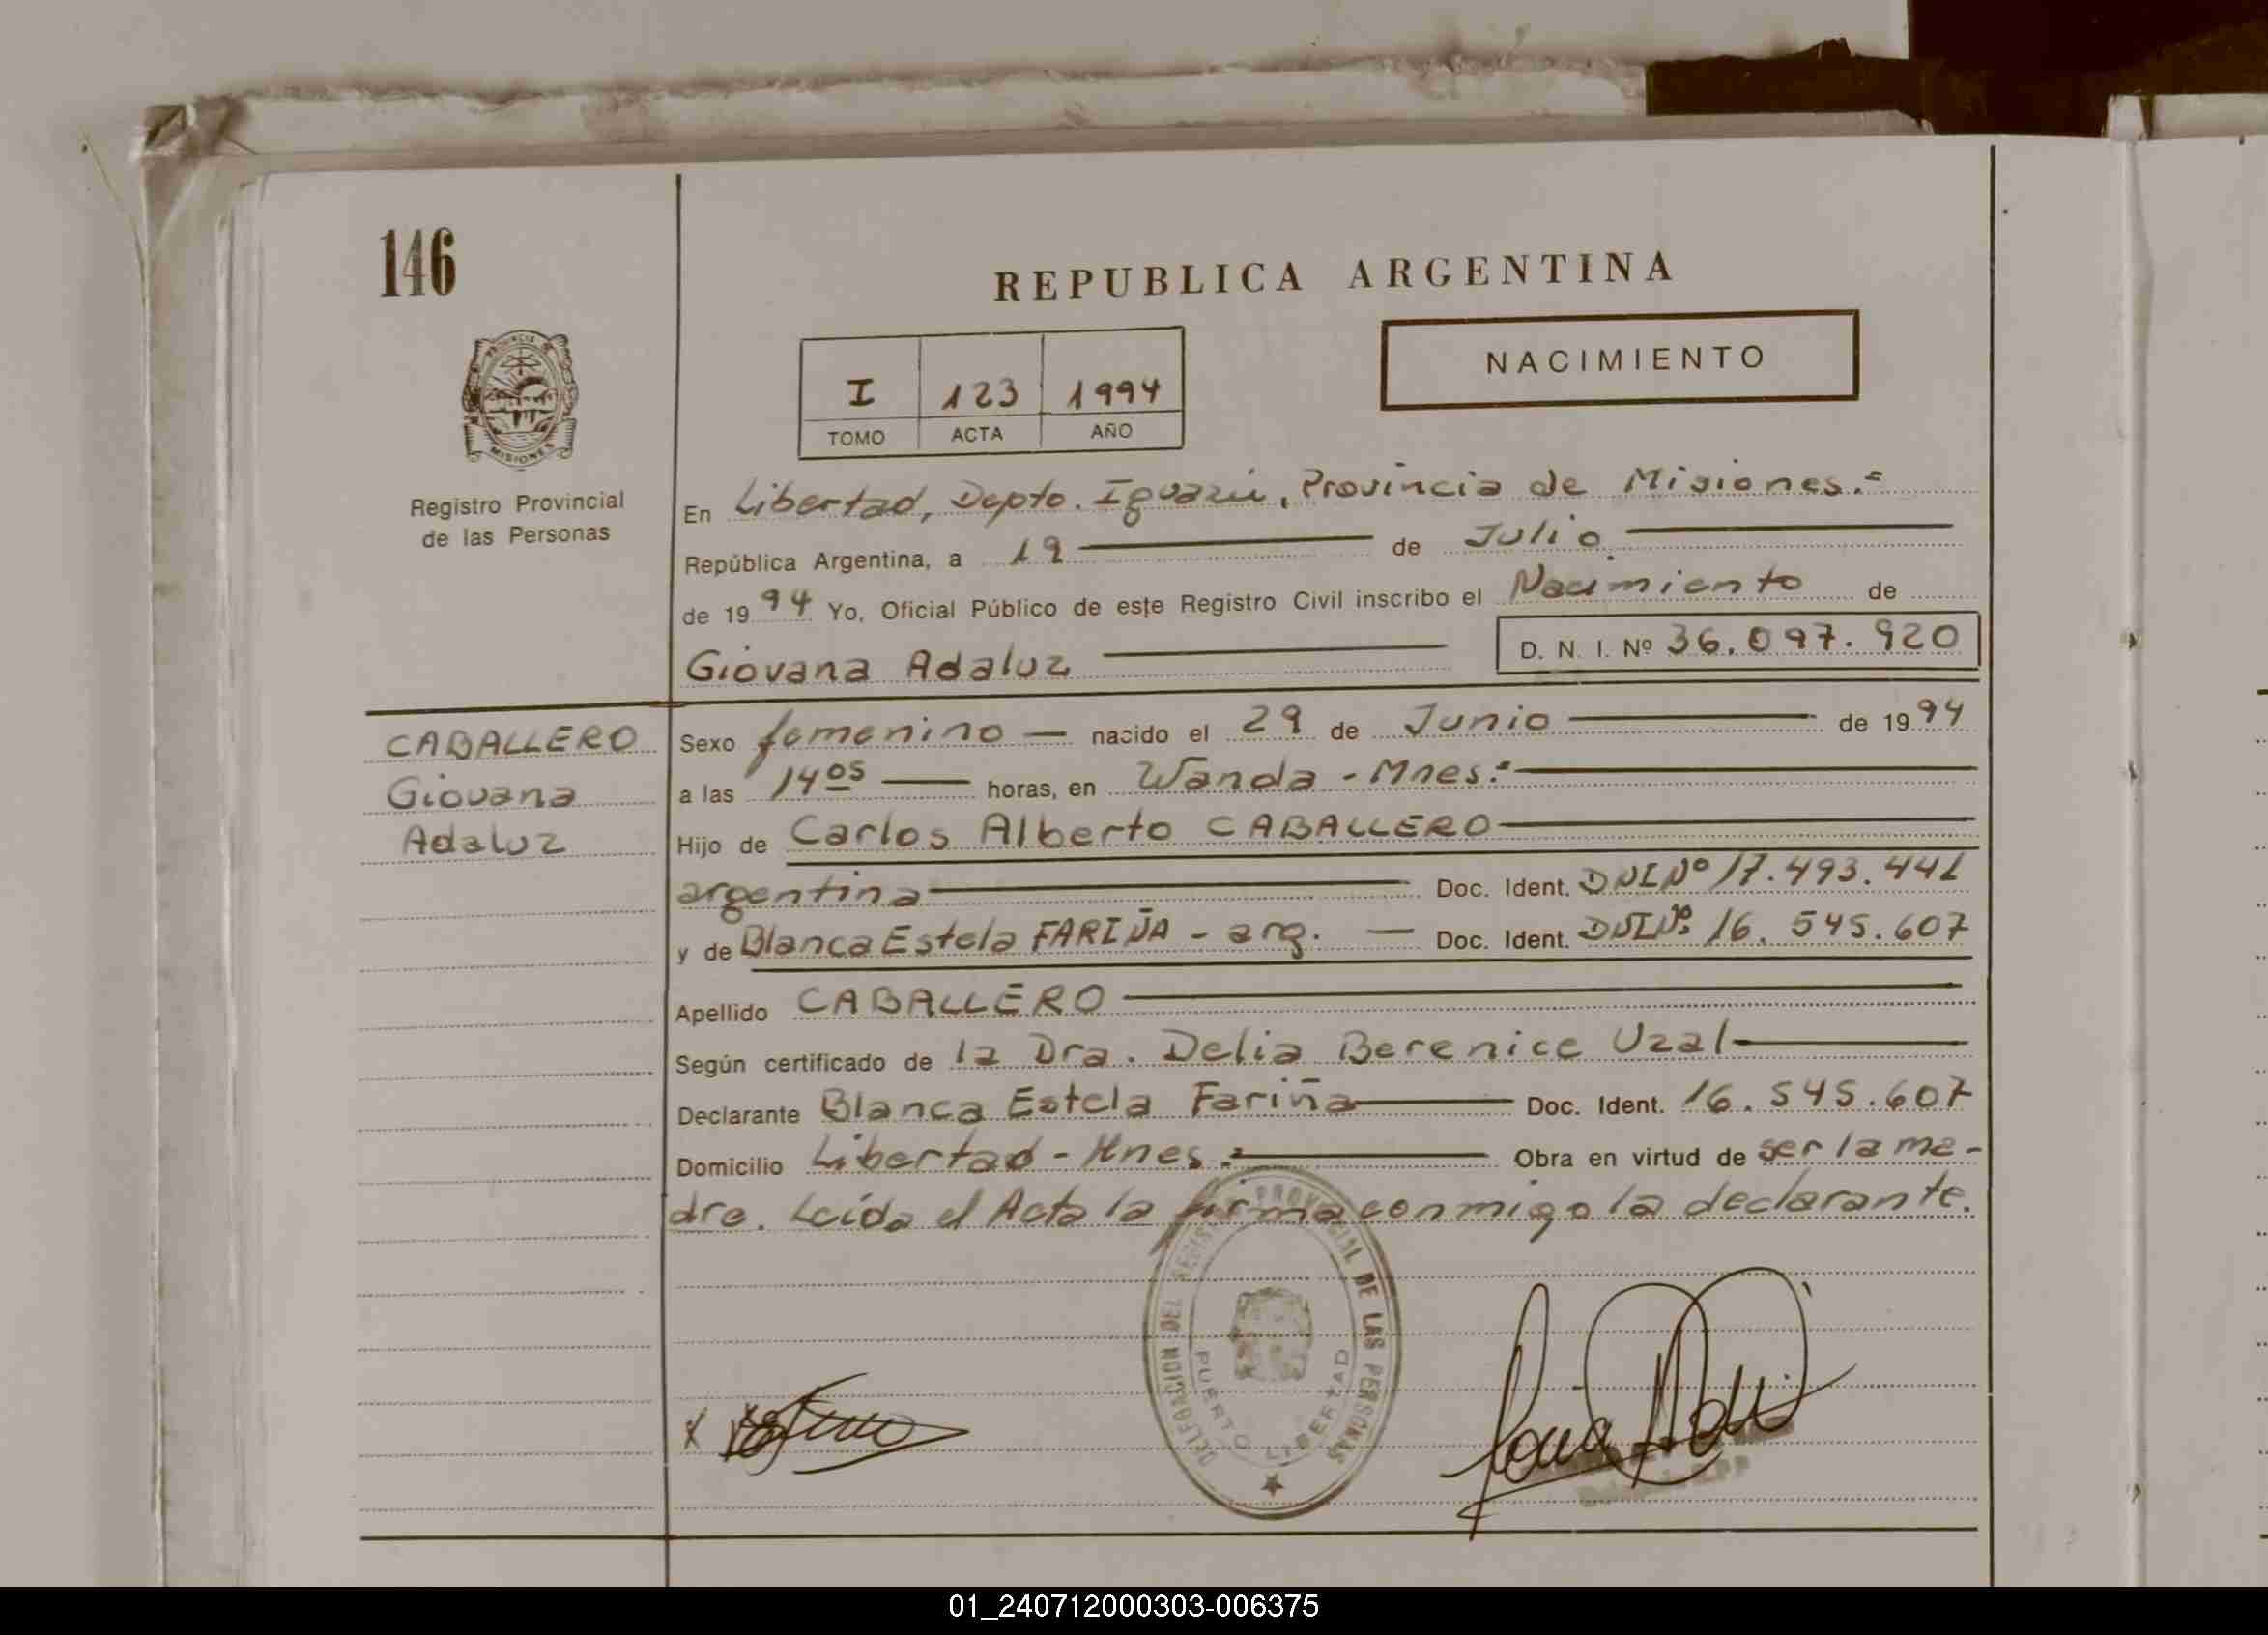 146
REPUBLICA ARGENTINA
NACIMIENTO
I 123 1994
TOMO ACTA AÑO
PROVINCIA DE
MISIONES
Registro Provincial
de las Personas
En Libertad, Depto. Iguazú, Provincia de Misiones.=
República Argentina, a 19 de Julio
de 1994 Yo, Oficial Público de este Registro Civil inscribo el Nacimiento de
Giovana Adaluz D. N. I. Nº 36.097.920
CABALLERO
Giovana
Adaluz
Sexo femenino — nacido el 29 de Junio de 1994
a las 14 05 horas, en Wanda - Mnes.=
Hijo de Carlos Alberto CABALLERO
argentina Doc. Ident. DNI Nº 17.493.441
y de Blanca Estela FARIÑA - arg. — Doc. Ident. DNI Nº 16.545.607
Apellido CABALLERO
Según certificado de la Dra. Delia Berenice Uzal
Declarante Blanca Estela Fariña Doc. Ident. 16.545.607
Domicilio Libertad - Mnes.= Obra en virtud de ser la ma-
dre. Leída el Acta la firma conmigo la declarante.
DELEGACION DEL REGISTRO PROVINCIAL DE LAS PERSONAS
PUERTO LIBERTAD
01_240712000303-006375